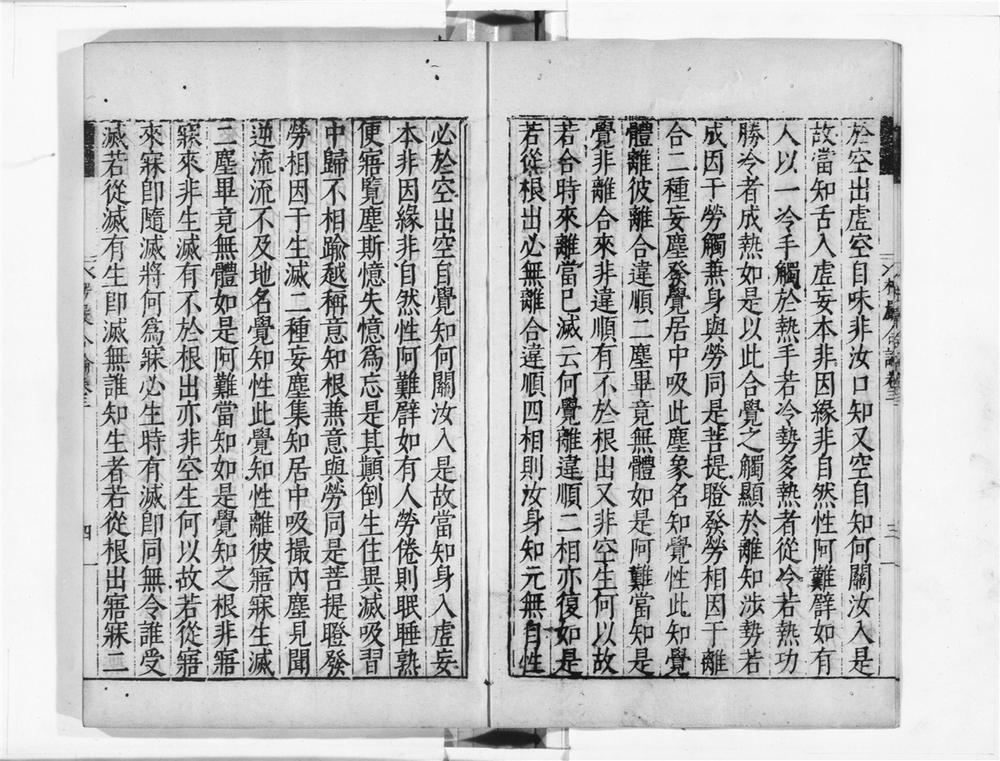 於空出虛空自味非汝口知又空自知何關汝入是
故當知舌入虛妄本非因緣非自然性阿難譬如有
人以一冷手觸於熱手若冷勢多熱者從冷若熱功
勝冷者成熱如是以此合覺之觸顯於離知涉勢若
成因于勞觸兼身與勞同是菩提瞪發勞相因于離
合二種妄塵發覺居中吸此塵象名知覺性此知覺
體離彼離合違順二塵畢竟無體如是阿難當知是
覺非離合來非違順有不於根出又非空生何以故
若合時來離當已滅云何覺離違順二相亦復如是
若從根出必無離合違順四相則汝身知元無自性
必於空出空自覺知何關汝入是故當知身入虛妄
本非因緣非自然性阿難譬如有人勞倦則眠睡熟
便寤覽塵斯憶失憶為忘是其顛倒生住異滅吸習
中歸不相踰越稱意知根兼意與勞同是菩提瞪發
勞相因于生滅二種妄塵集知居中吸撮內塵見聞
逆流流不及地名覺知性此覺知性離彼寤寐生滅
二塵畢竟無體如是阿難當知如是覺知之根非寤
寐來非生滅有不於根出亦非空生何以故若從寤
來寐即隨滅將何為寐必生時有滅即同無令誰受
滅若從滅有生即滅無誰知生者若從根出寤寐二
三
四